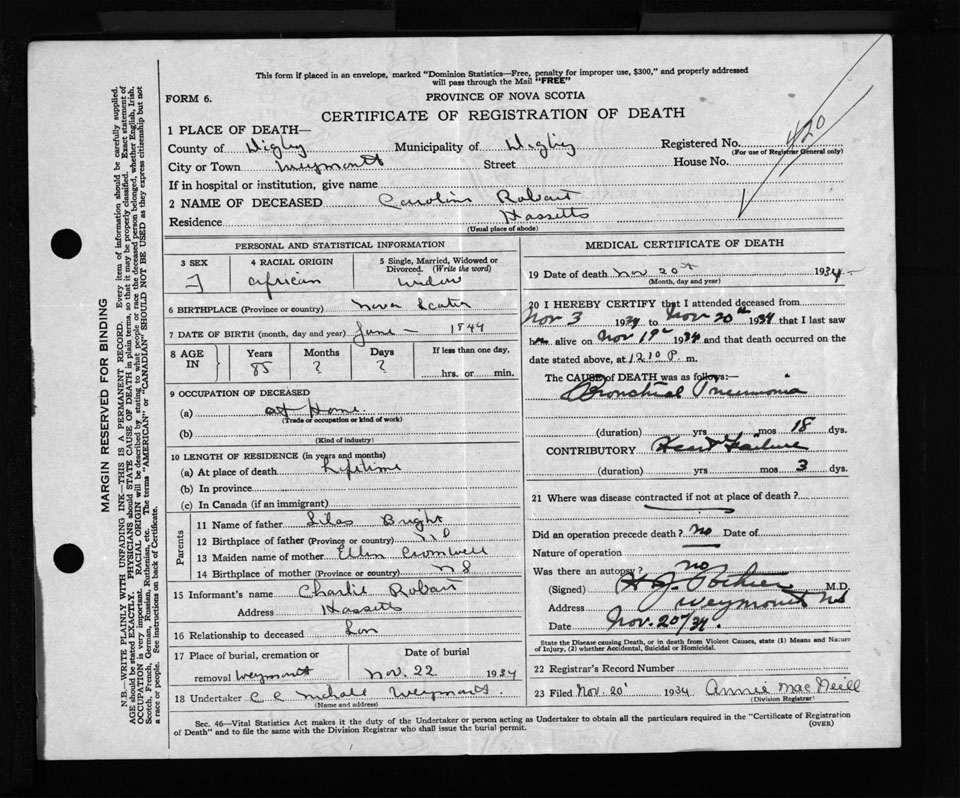 This form if placed in an envelope, marked "Dominion Statistics—Free, penalty for improper use, $300," and properly addressed
will pass through the Mail "FREE"
FORM 6.
PROVINCE OF NOVA SCOTIA
CERTIFICATE OF REGISTRATION OF DEATH
420
1 PLACE OF DEATH—
County of Digby Municipality of Digby Registered No.
(For use of Registrar General only)
City or Town Weymouth Street House No.
If in hospital or institution, give name
2 NAME OF DECEASED Caroline Robart
Residence Hassetts
(Usual place of abode)
PERSONAL AND STATISTICAL INFORMATION
3 SEX 4 RACIAL ORIGIN 5 Single, Married, Widowed or Divorced. (Write the word)
F African Widow
6 BIRTHPLACE (Province or country) Nova Scotia
7 DATE OF BIRTH (month, day and year) June — 1849
8 AGE IN Years Months Days If less than one day,
85 ? ? hrs. or min.
9 OCCUPATION OF DECEASED
(a) at Home
(Trade or occupation or kind of work)
(b)
(Kind of industry)
10 LENGTH OF RESIDENCE (in years and months)
(a) At place of death Lifetime
(b) In province
(c) In Canada (if an immigrant)
Parents
11 Name of father Silas Bright
12 Birthplace of father (Province or country)
13 Maiden name of mother Ellen Cromwell
14 Birthplace of mother (Province or country) N S
15 Informant's name Charlie Robart
Address Hassetts
16 Relationship to deceased Son
17 Place of burial, cremation or removal Weymouth
Date of burial
Nov. 22 1934
18 Undertaker C C Weymouth.
(Name and address)
MEDICAL CERTIFICATE OF DEATH
19 Date of death Nov 20th 1934
(Month, day and year)
20 I HEREBY CERTIFY that I attended deceased from
Nov 3 1934 to Nov 20th 1934 that I last saw
her alive on Nov 19th 1934 and that death occurred on the
date stated above, at 12 10 P. m.
The CAUSE of DEATH was as follows:—
Bronchial Pneumonia
(duration) yrs mos 18 dys.
CONTRIBUTORY Heart Failure
(duration) yrs mos 3 dys.
21 Where was disease contracted if not at place of death?
Did an operation precede death? No Date of
Nature of operation
Was there an autopsy? no
(Signed) M.D.
Address Weymouth NS
Date Nov. 20/34.
State the Disease causing Death, or in death from Violent Causes, state (1) Means and Nature
of Injury, (2) whether Accidental, Suicidal or Homicidal.
22 Registrar's Record Number
23 Filed Nov. 20 1934 Annie MacNeill
(Division Registrar)
Sec. 46—Vital Statistics Act makes it the duty of the Undertaker or person acting as Undertaker to obtain all the particulars required in the "Certificate of Registration
of Death" and to file the same with the Division Registrar who shall issue the burial permit.
(OVER)
MARGIN RESERVED FOR BINDING
N.B.—WRITE PLAINLY WITH UNFADING INK—THIS IS A PERMANENT RECORD. Every item of information should be carefully supplied.
AGE should be stated EXACTLY. PHYSICIANS should STATE CAUSE OF DEATH in plain terms, so that it may be properly classified. Exact statement of
OCCUPATION is very important. RACIAL ORIGIN will be described by stating to what people or race the deceased person belonged, whether English, Irish,
Scotch, French, German, Russian, Ruthenian, etc. The terms "AMERICAN" or "CANADIAN" SHOULD NOT BE USED as they express citizenship but not
a race or people. See instructions on back of Certificate.